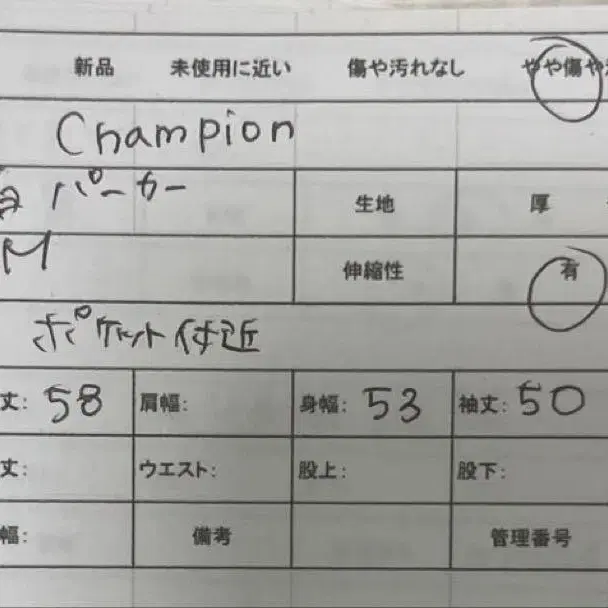 新品 未使用に近い 傷や汚れなし やや傷や
Champion
パーカー 生地 厚
M 伸縮性 有
ポケット付近
丈: 58 肩幅: 身幅: 53 袖丈: 50
丈: ウエスト: 股上: 股下:
幅: 備考 管理番号